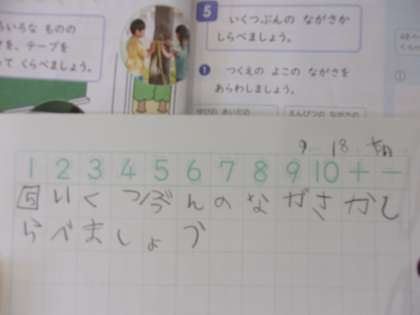 ろいろな ものの
さを、テープを
って くらべましょう。
5 いくつぶんの ながさか
しらべましょう。
1 つくえの よこの ながさを
あらわしましょう。
えんぴつの ながさの
9.18.
1 2 3 4 5 6 7 8 9 10 + −
5 いくつぶんのながさかし
らべましょう